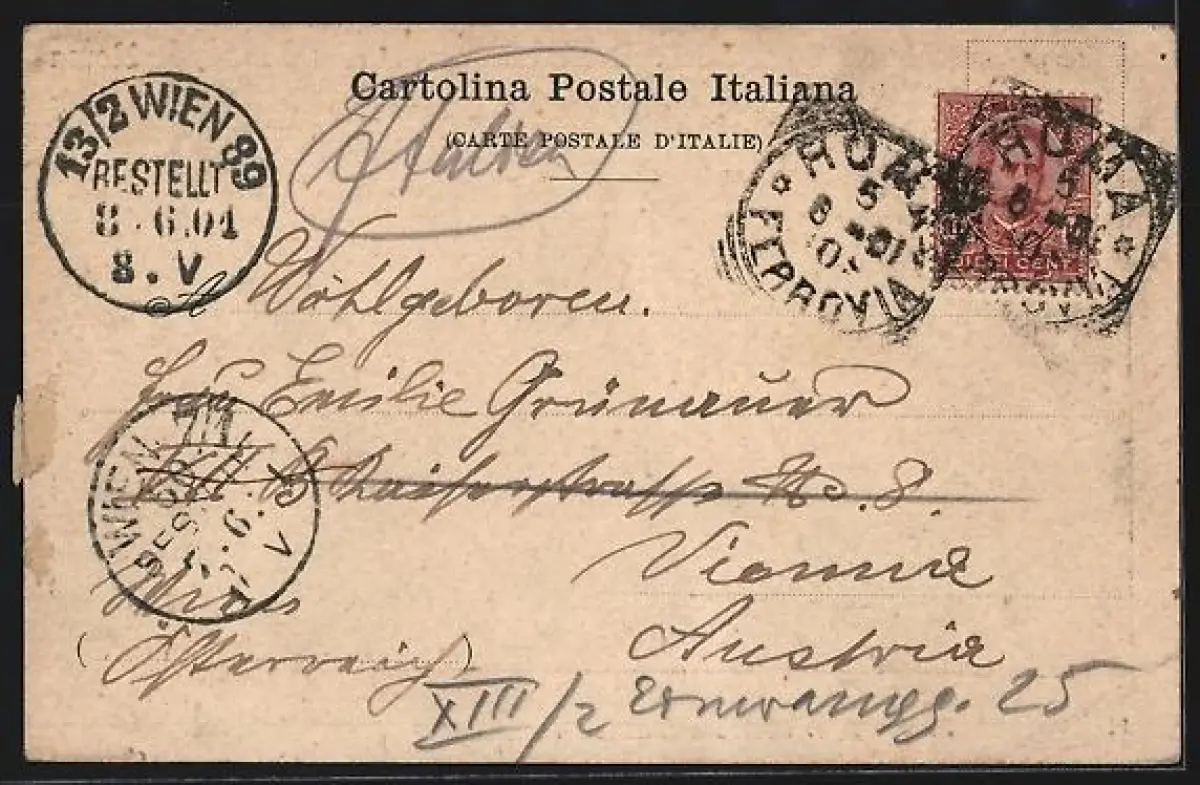 Cartolina Postale Italiana
(CARTE POSTALE D'ITALIE)
Italien
13/2 WIEN 89
BESTELLT
8 . 6.01
8 . V
ROMA
5
6 - 01
FERROVIA
ROMA
5
6
CENT
A Wohlgeboren.
Frau Emilie Grünauer
Kaiserstrasse No. 8.
WIEN 7/1
6.
V
Vienna
Wien
Austria
(Österreich)
XIII/2 25